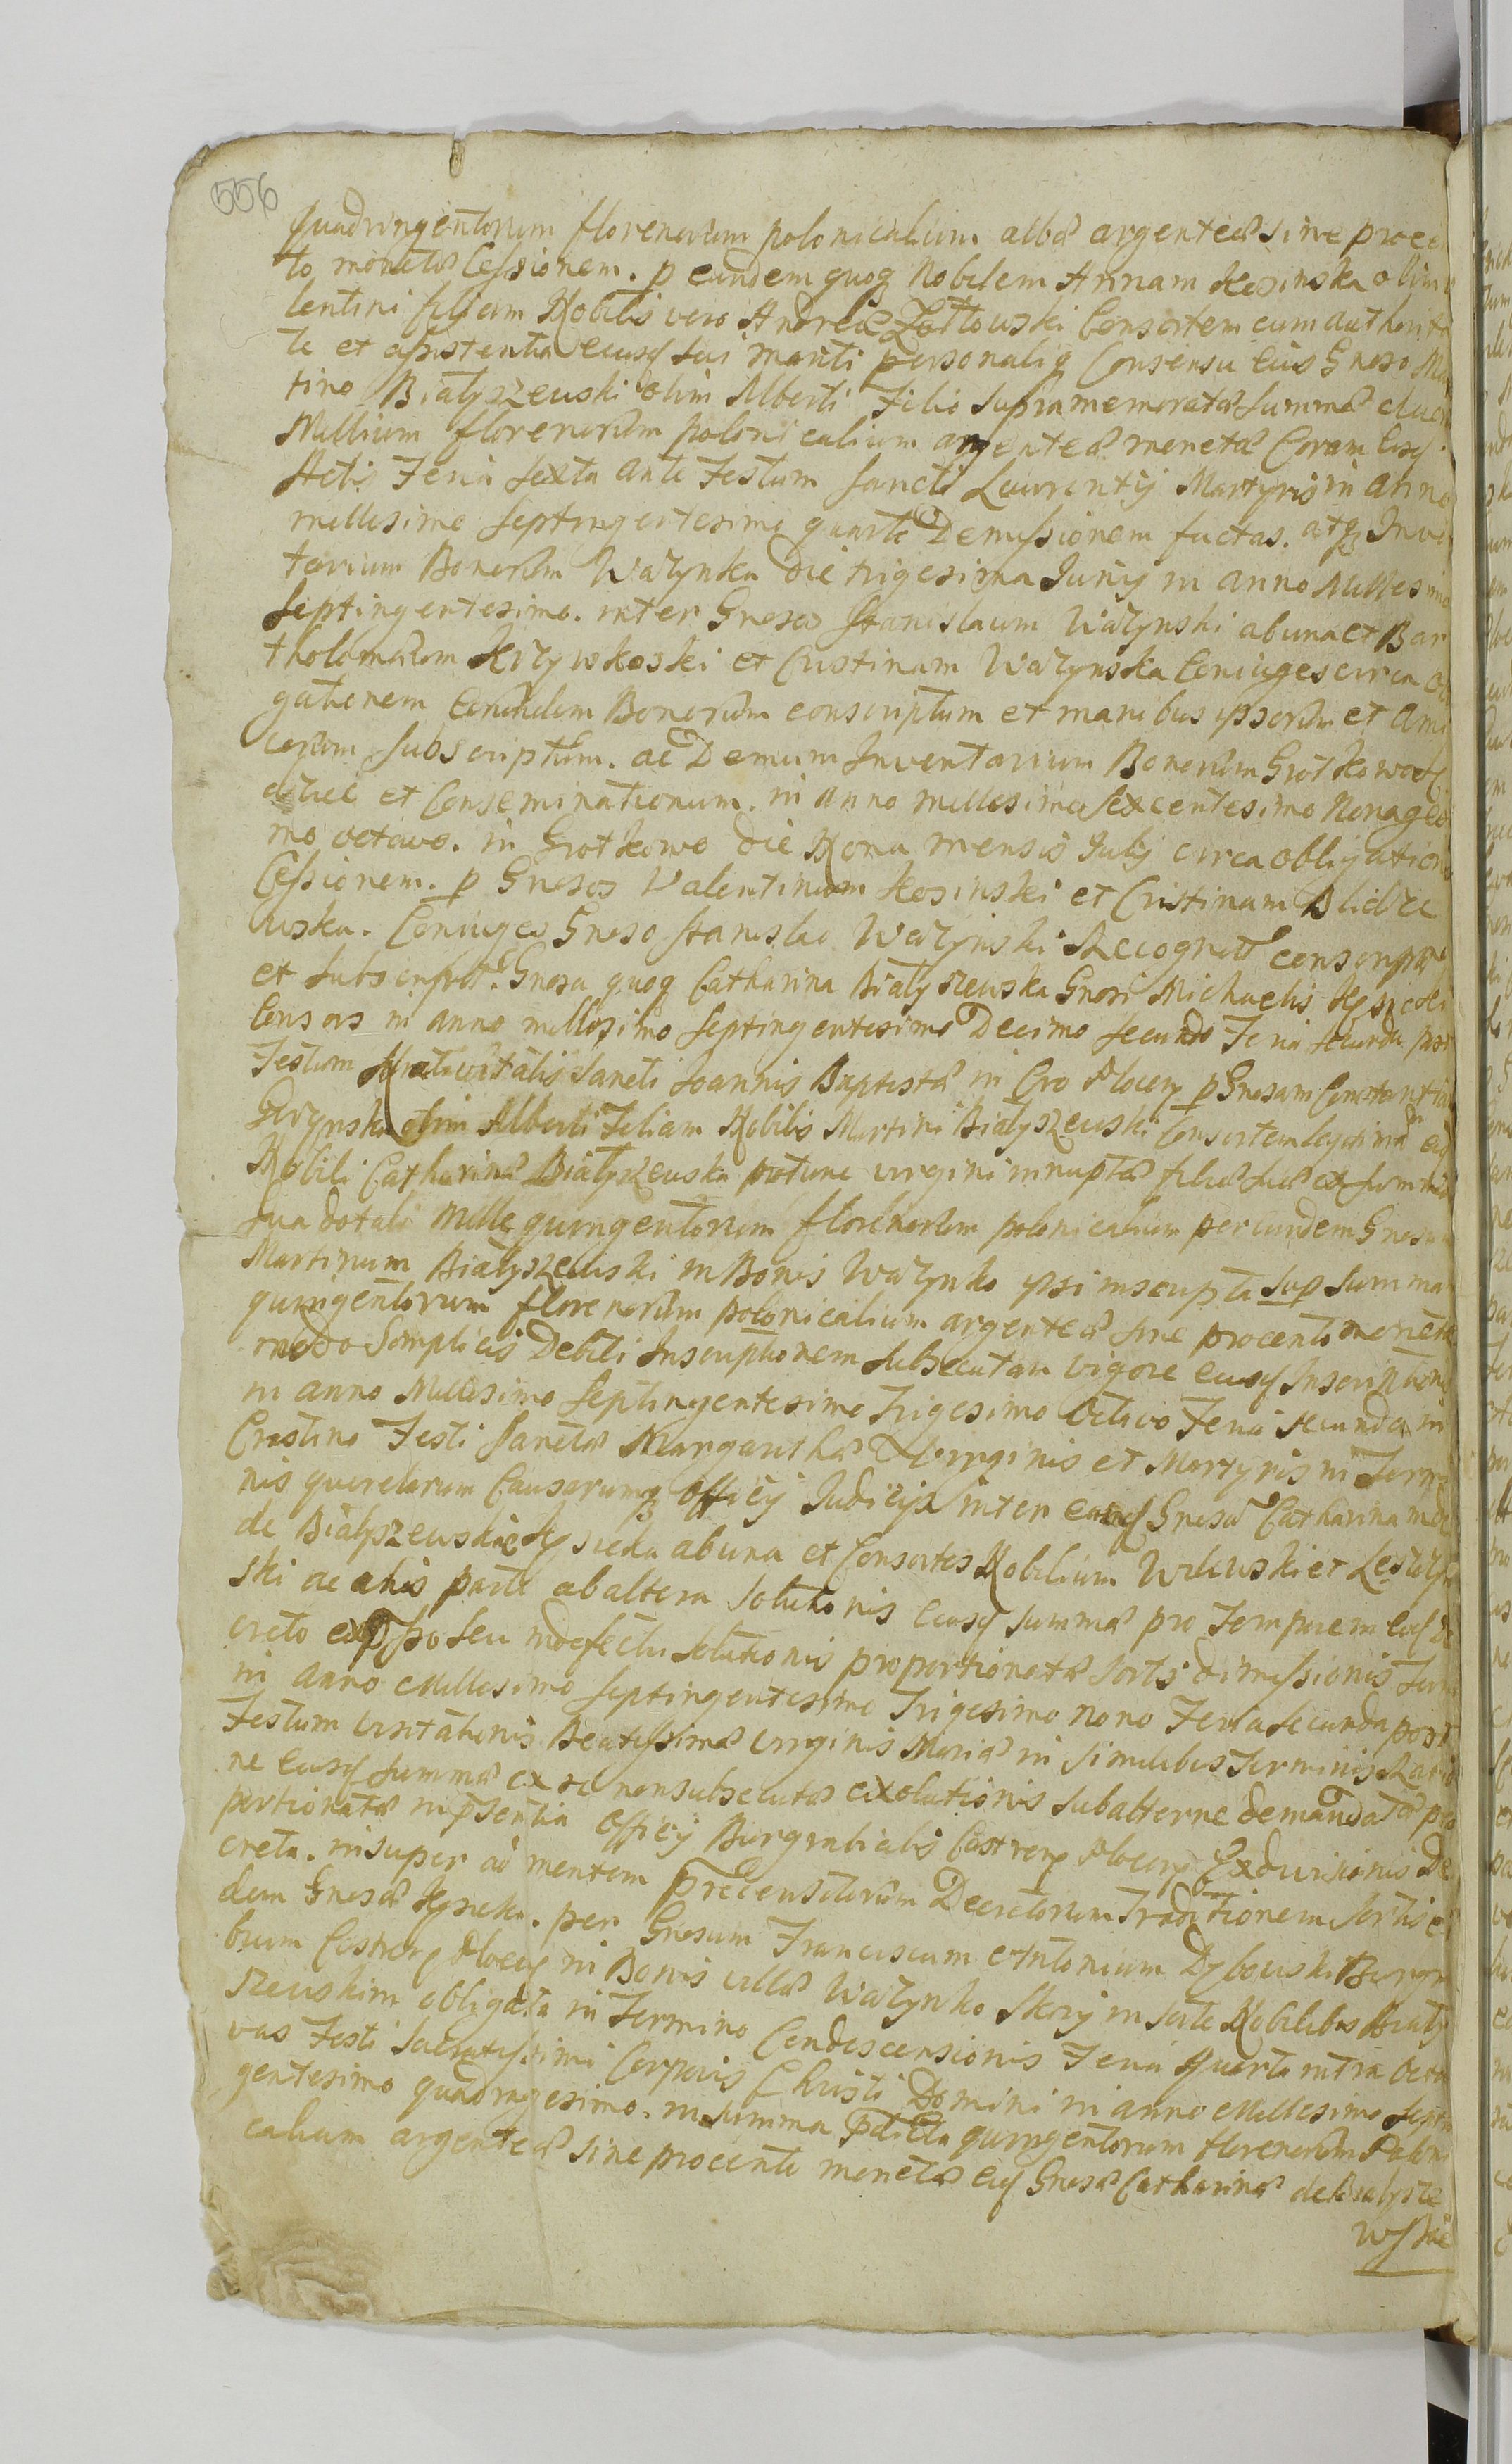 556
quadringentorum florenorum polonicalium albæ argenteæ sine procen
to, monetæ Cessionem. p eandem quoq Nobilem Annam Kosinska olim
lentini filiam Nobilis vero Andreæ Zottowski Consortem cum authorita
te et assistentia eiusq sui mariti personaliq Consensu eius Gnoso Mar
tino Białyszewski olim Alberti Filio supramemoratæ summæ duorum
Millium florenorum polonicalium argenteæ monetæ Coram eisq
Actis Feria sexta ante Festum sancti Laurentij Martyris in anno
millesimo septingentesimo quarto Demissionem factas. atq Inven
tarium Bonorum Ważynka die trigesima Junij in anno Millesimo
septingentesimo. inter Gnosos Stanislaum Ważynski ab una et Bar
tholomæum Krzywkoski et Cristinam Ważynska Coniuges circa obli
gationem eorundem Bonorum conscriptum et manibus ipsorum et Ami
corum subscriptum. ac Demum Inventarium Bonorum Grotkowo
et Conseminationum. in anno millesimo sexcentesimo Nonagesi
mo octavo. in Grotkowo die Nona mensis Julij circa obligationis
Cessionem. p Gnosos Valentinum Kosinski et Cristinam Blidze
wska. Coniuges Gnoso Stanislao Ważynski Recognitæ conscriptæ
et subscriptæ. Gnosa quoq Catharina Białyszewska Gnosi Michaelis Kęsicki
Consors in anno millesimo septingentesimo Decimo secundo Feria secunda post
Festum Nativitatis Sancti Joannis Baptistæ in Cro Plocen p Gnosam Constantiam
olim Alberti Filiam Nobilis Martini Białyszewski Consortem legitimam
Nobili Catharinæ Białyszewska protunc virgini innuptæ filiæ suæ ex summa
sua dotali mille quingentorum florenorum polonicalium per eundem Gnosum
Martinum Białyszewski in Bonis Ważynko ipsi inscripta sup summa
quingentorum florenorum polonicalium argenteæ sine procento monetæ
modo Simplicis Debiti Inscriptionem subsecutam vigore eiusq Inscriptionis
in anno Millesimo septingentesimo Trigesimo Octavo Feria secunda in
Crastino Festi Sanctæ Margarithæ Virginis et Martyris in Termi
nis querelarum Causarumq Officij Judicijs inter eandq Gnosa Catharina
de Białyszewskie Kęsicka ab una et Consortes Nobilium Wilewski et
ski ac aliis parte ab altera solutionis eiusq summæ pro Tempore in eosq De
creto expsso seu in defectu solutionis proportionatæ sortis dimissionis
in anno Millesimo septingentesimo Trigesimo nono Feria secunda post
Festum visitationis Beatissimæ virginis Mariæ in similibus Terminis Ratio
ne eiusq summæ ex re non subsecutæ exolutionis subalterne demandatæ pro
portionatæ in psentia Officij Burgrabialis Castren Plocen Exdivisionis De
creta. insuper ad mentem præcensitorum Decretorum Traditionem sortis ei
dem Gnosæ Kęsicka. per Gnosum Franciscum Antonium Dybowski Burgra
bium Castren Plocen in Bonis villæ Ważynko Skory in sorte Nobilibus Biały
szewskim obligata in Termino Condescensionis Feria Quarta intra Octa
vas Festi Sacratissimi Corporis Christi Domini in anno Millesimo septin
gentesimo quadragesimo. in summa pdicta quingentorum florenorum Poloni
calium argenteæ sine procento monetæ eiusq Gnosæ Catharinæ de Białysze
wskie